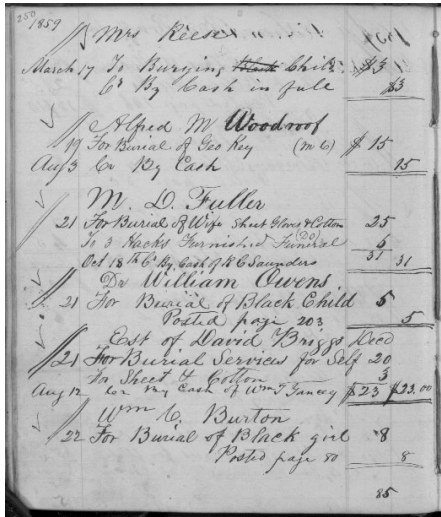 250
1859
Mrs Reese
March 17 To Burying Black Child $3
Cr By Cash in full $3
Alfred M Woodroof
19 For Burial of Geo Key (m C) $15
Aug 3 Cr By Cash 15
M. D. Fuller
21 For Burial of Wife Sheet Gloves & Cotton 25
To 3 Hacks Furnished Funeral (Do) 6
31 31
Oct 18th Cr By Cash of R C Saunders
Dr William Owens
21 For Burial of Black Child 5
Posted page 203 5
Est of David Briggs Decd
21 For Burial Services for Self 20
For Sheet & Cotton 3
Aug 12 Cor By Cash of Wm T Yancey $23 $23.00
Wm C Burton
22 For Burial of Black girl 8
Posted page 80 8
85